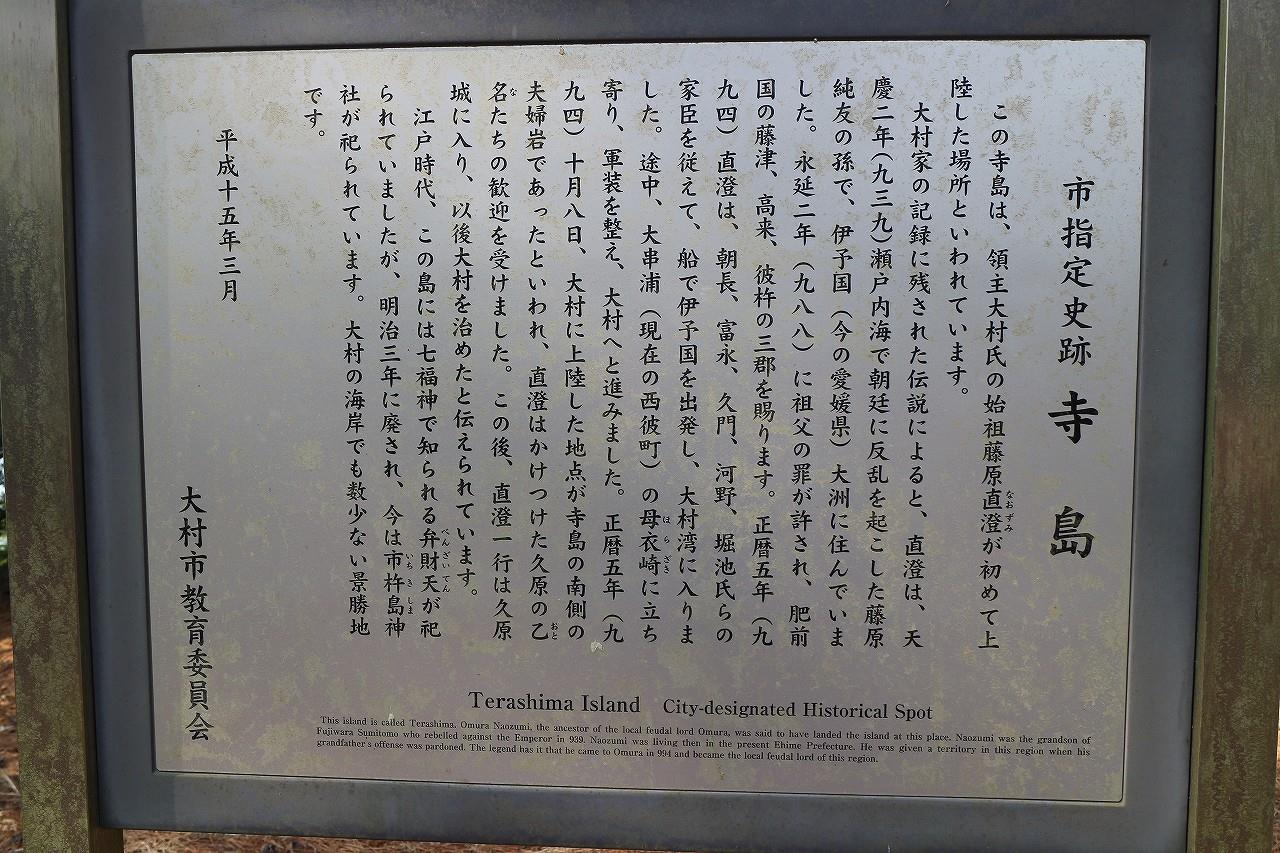 市指定史跡 寺島
この寺島は、領主大村氏の始祖藤原直澄が初めて上
陸した場所といわれています。
大村家の記録に残された伝説によると、直澄は、天
慶二年(九三九)瀬戸内海で朝廷に反乱を起こした藤原
純友の孫で、伊予国(今の愛媛県)大洲に住んでいま
した。永延二年(九八八)に祖父の罪が許され、肥前
国の藤津、高来、彼杵の三郡を賜ります。正暦五年(九
九四)直澄は、朝長、富永、久門、河野、堀池氏らの
家臣を従えて、船で伊予国を出発し、大村湾に入りま
した。途中、大串浦(現在の西彼町)の母衣崎に立ち
寄り、軍装を整え、大村へと進みました。正暦五年(九
九四)十月八日、大村に上陸した地点が寺島の南側の
夫婦岩であったといわれ、直澄はかけつけた久原の乙
名たちの歓迎を受けました。この後、直澄一行は久原
城に入り、以後大村を治めたと伝えられています。
江戸時代、この島には七福神で知られる弁財天が祀
られていましたが、明治三年に廃され、今は市杵島神
社が祀られています。大村の海岸でも数少ない景勝地
です。
平成十五年三月
大村市教育委員会
なおずみ
ほらざき
おと
な
べんざいてん
いちきしま
Terashima Island City-designated Historical Spot
This island is called Terashima. Omura Naozumi, the ancestor of the local feudal lord Omura, was said to have landed the island at this place. Naozumi was the grandson of
Fujiwara Sumitomo who rebelled against the Emperor in 939. Naozumi was living then in the present Ehime Prefecture. He was given a territory in this region when his
grandfather's offense was pardoned. The legend has it that he came to Omura in 994 and became the local feudal lord of this region.